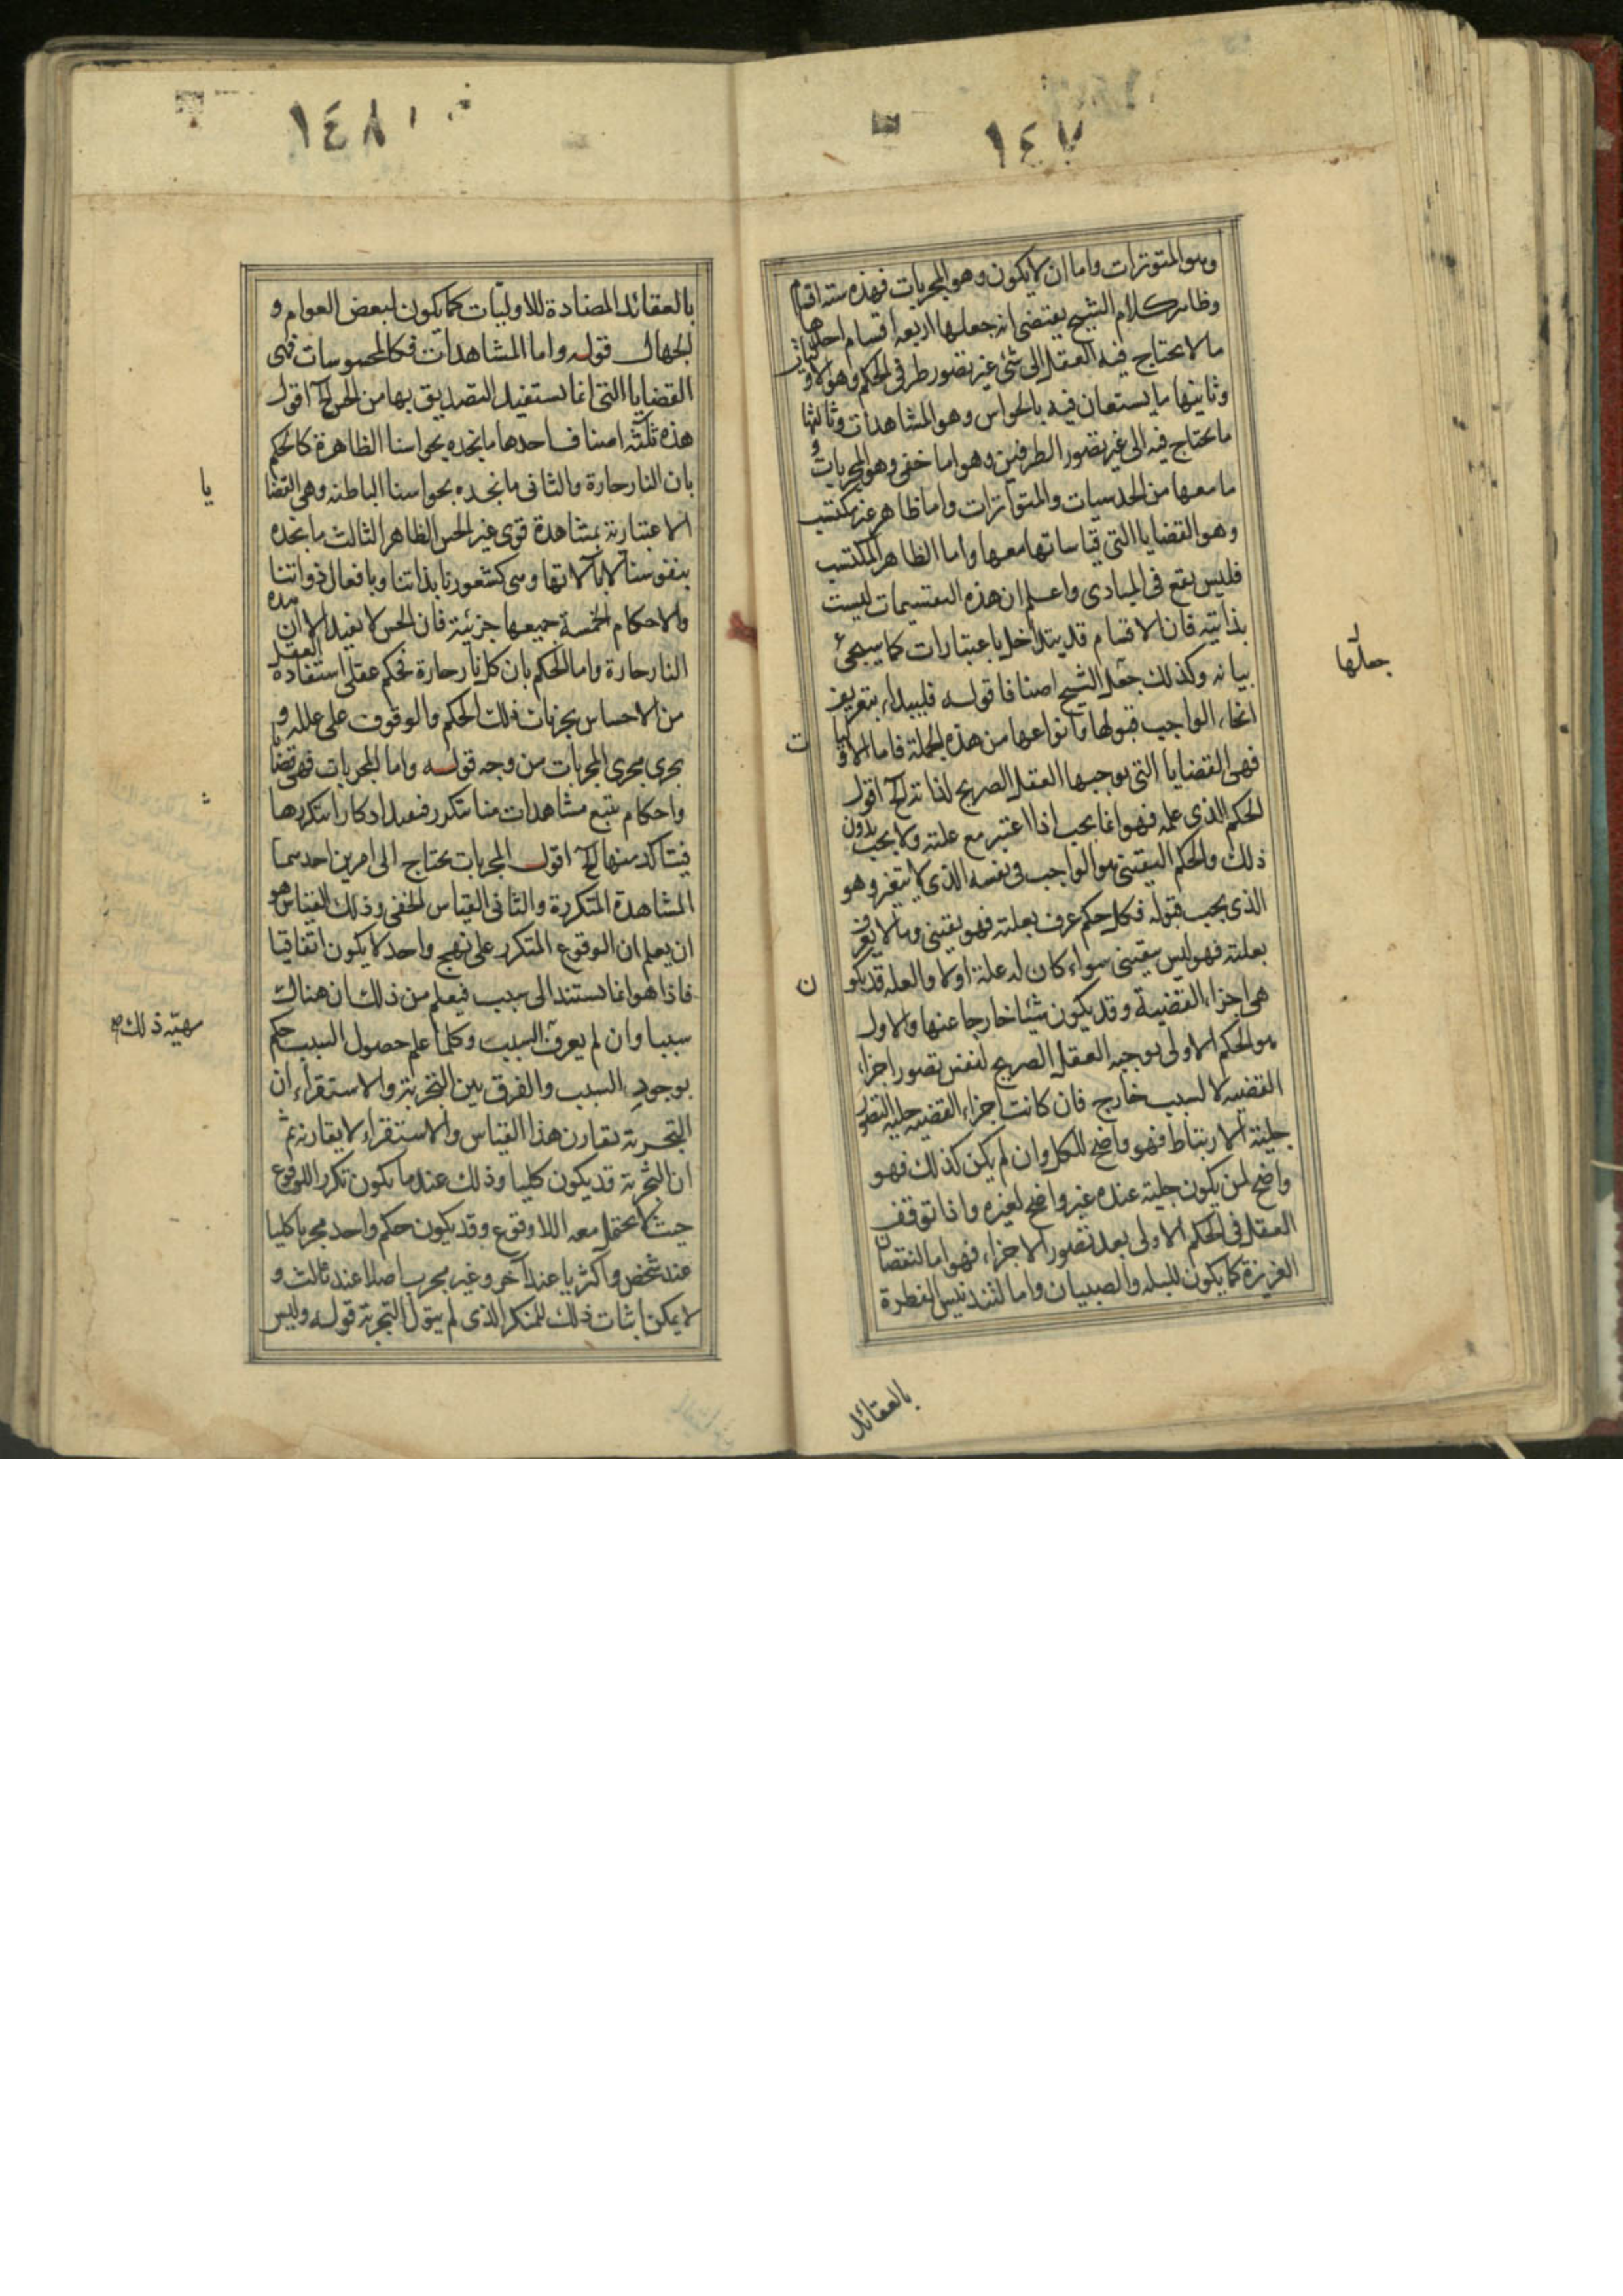 ١٤٧
وهو المتوترات واما ان لا يكون وهو المجربات فهذه ستة اقسام
وظاهر كلام الشيخ يقتضى انه جعلها اربعة اقسام احدها
ما لا يحتاج فيه العقل الى شئ غير تصور طرفى الحكم وهو الاوليات
وثانيها ما يستعان فيه بالحواس وهو المشاهدات وثالثها
ما يحتاج فيه الى غير تصور الطرفين وهو اما خفى وهو المجربات و
ما معها من الحدسيات والمتواترات واما ظاهر غير مكتسب
وهو القضايا التى قياساتها معها واما الظاهر المكتسب
فليس يقع فى المبادى واعلم ان هذه التقسيمات ليست
بذاتية فان الاقسام قد يتداخل باعتبارات كما سيجئ
بيانه وكذلك جعل الشيخ اصنافا قوله فلنبدأ بتعريف
جعلها
انحاء الواجب قبولها وانواعها من هذه الجملة فاما الاوليا
ت
فهى القضايا التى يوجبها العقل الصريح لذاته الخ اقول
الحكم الذى علمه فهو انما يجب اذا اعتبر مع علته ولا يجب بدون
ذلك والحكم اليقينى هو الواجب فى نفسه الذى لا يتغير وهو
الذى يجب قبوله فكل حكم عرف بعلته فهو يقينى وما لا يعرف
بعلته فهو ليس يقينى سواء كان له علة اولا والعله قد يكو
ن
هى اجزاء القضية وقد يكون شيئا خارجا عنها والاول
هو الحكم الاولى يوجبه العقل الصريح لنفس تصور اجزاء
القضيه لا لسبب خارج فان كانت اجزاء القضيه جليه التصور
جلية الارتباط فهو واضح للكل وان لم يكن كذلك فهو
واضح لمن يكون جلية عنده غير واضح لغيره واذا توقف
العقل فى الحكم الاولى بعد تصور الاجزاء فهو اما لنقصان
الغريزة كما يكون للبله والصبيان واما لتدنيس الفطرة
بالعقائد
١٤٨
بالعقائد المضادة للاوليات كما يكون لبعض العوام و
الجهال قوله واما المشاهدات فكالمحسوسات فهى
القضايا التى انما يستفيد التصديق بها من الحس الخ اقول
هذه ثلثه اصناف احدها ما نجده بحواسنا الظاهرة كالحكم
بان النار حارة والثانى ما نجده بحواسنا الباطنه وهى القضا
يا
الاعتبارية بمشاهدة قوى غير الحس الظاهر الثالث ما نجده
بنفوسنا لا بآلاتها وهى كشعورنا بذاتنا وبافعال ذواتنا
والاحكام الخمسة جميعها جزئية فان الحس لا يفيد الا ان هذه
النار حارة واما الحكم بان كل نار حارة فحكم عقلى استفاده العقل
من الاحساس بجزئيات ذلك الحكم والوقوف على علله و
يجرى مجرى المجربات من وجه قوله واما المجربات فهى قضايا
واحكام يتبع مشاهدات منا تتكرر فيفيد ادكارا بتكررها
فيتأكد منها الخ اقول المجربات يحتاج الى امرين احدهما
المشاهدة المتكررة والثانى القياس الخفى وذلك القياس هو
ان يعلم ان الوقوع المتكرر على نهج واحد لا يكون اتفاقيا
فاذا هو انما يستند الى سبب فيعلم من ذلك ان هناك
سببا وان لم يعرف السبب وكلما علم حصول السبب حكم
بوجود السبب والفرق بين التجربة والاستقراء ان
التجربة يقارن هذا القياس والاستقراء لا يقارنه ثم
ان التجربة قد يكون كليا وذلك عندما يكون تكرر الوقوع
حيث لا يحتمل معه اللاوقوع وقد يكون حكم واحد مجربا كليا
عند شخص واكثريا عند آخر وغير مجرب اصلا عند ثالث و
لا يمكن اثبات ذلك للمنكر الذى لم يتول التجربة قوله وليس